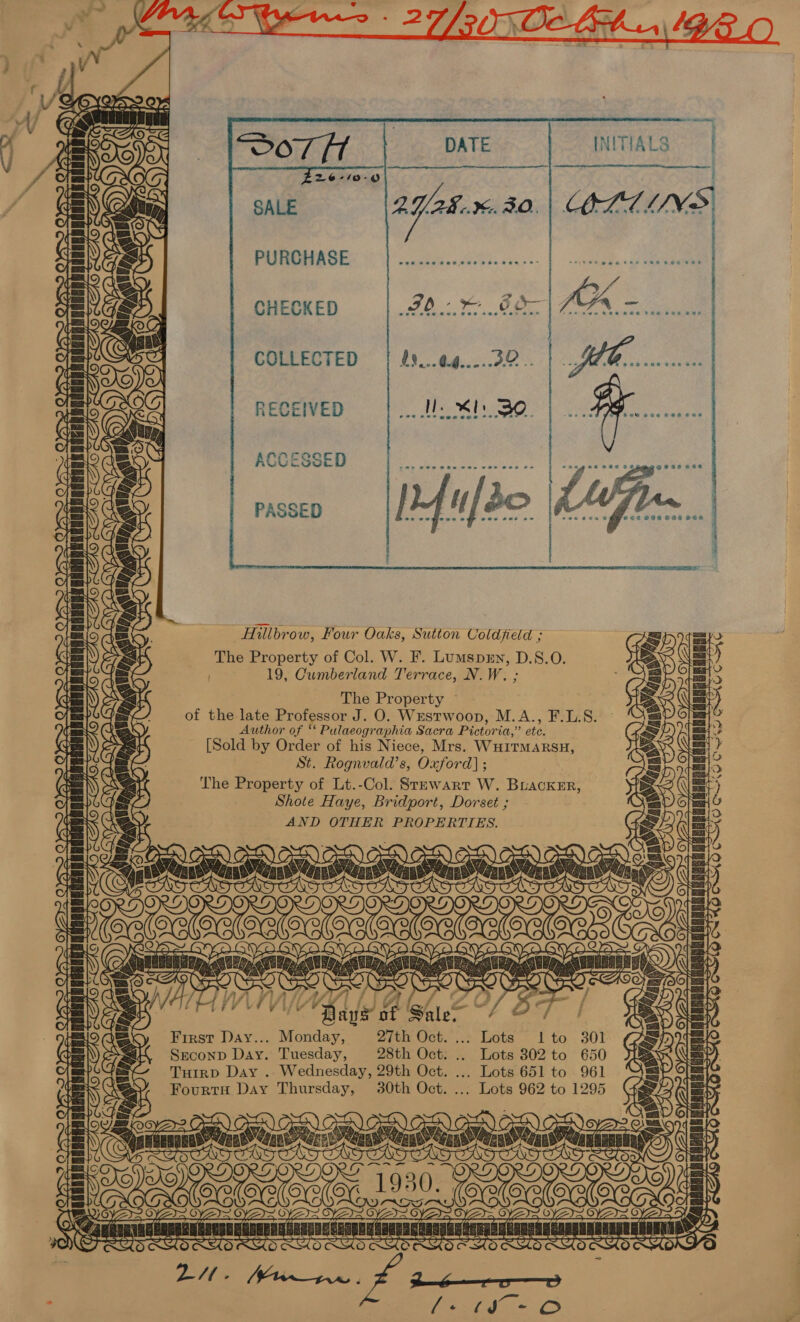 27/30 1930
SOTH DATE INITIALS
£26-10-0
SALE 27/28.x.30. COLLINS
PURCHASE
CHECKED 30
COLLECTED 30
RECEIVED 11. XI. 30
ACCESSED
PASSED
Hillbrow, Four Oaks, Sutton Coldfield ;
The Property of Col. W. F. Lumsden, D.S.O.
19, Cumberland Terrace, N.W. ;
The Property
of the late Professor J. O. Westwood, M.A., F.L.S.
Author of “ Palaeographia Sacra Pictoria,” etc.
[Sold by Order of his Niece, Mrs. Whitmarsh,
St. Rognvald’s, Oxford] ;
The Property of Lt.-Col. Stewart W. Blacker,
Shote Haye, Bridport, Dorset ;
AND OTHER PROPERTIES.
Days of Sale.
First Day... Monday, 27th Oct. ... Lots 1 to 301
Second Day. Tuesday, 28th Oct. .. Lots 302 to 650
Third Day . Wednesday, 29th Oct. ... Lots 651 to 961
Fourth Day Thursday, 30th Oct. ... Lots 962 to 1295
1930.